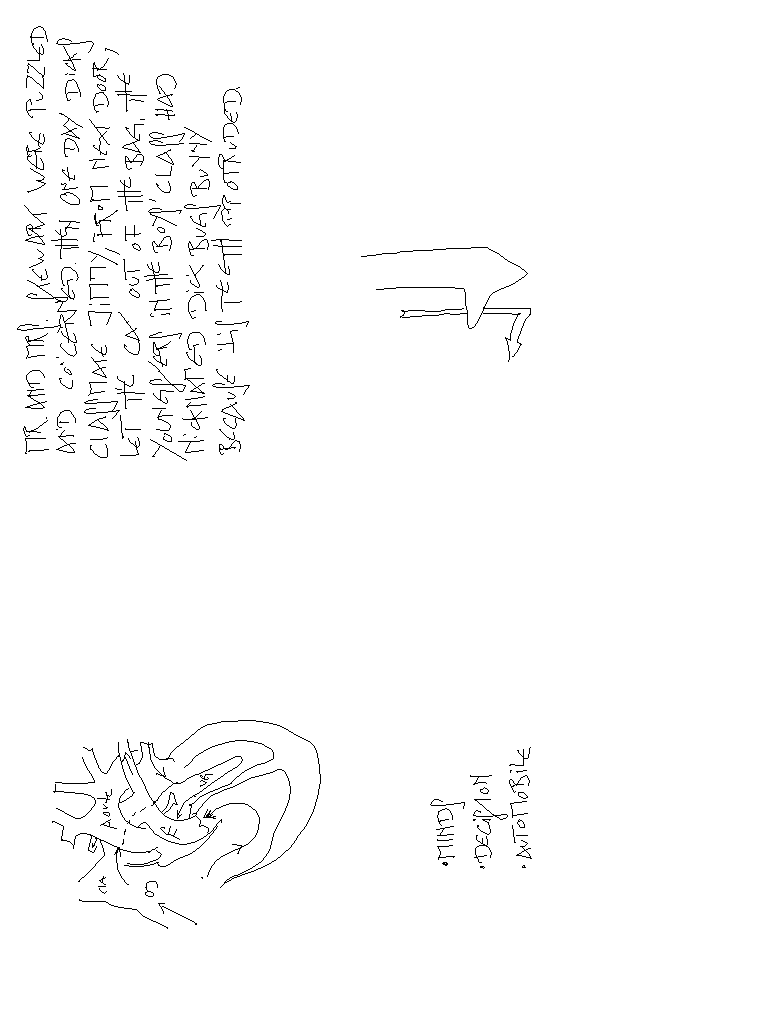 Aorte
CIA
OD
VG
MR. AND MRS. STEWART WERE PUZZLED
AND CONCERNED. THEN ONE DAY DICK'S
CLASSMATE JIMMY, FROM NEXT DOOR,
LET THE CAT OUT OF THE BAG. THE
YOUNGSTERS IN THE BOYS' CLASS HAD
NICKNAMED DICK BUGS BUNNY
BECAUSE HIS TEETH PROTRUDED.
• MINDS
• DECISION
• AUTOMOBILE